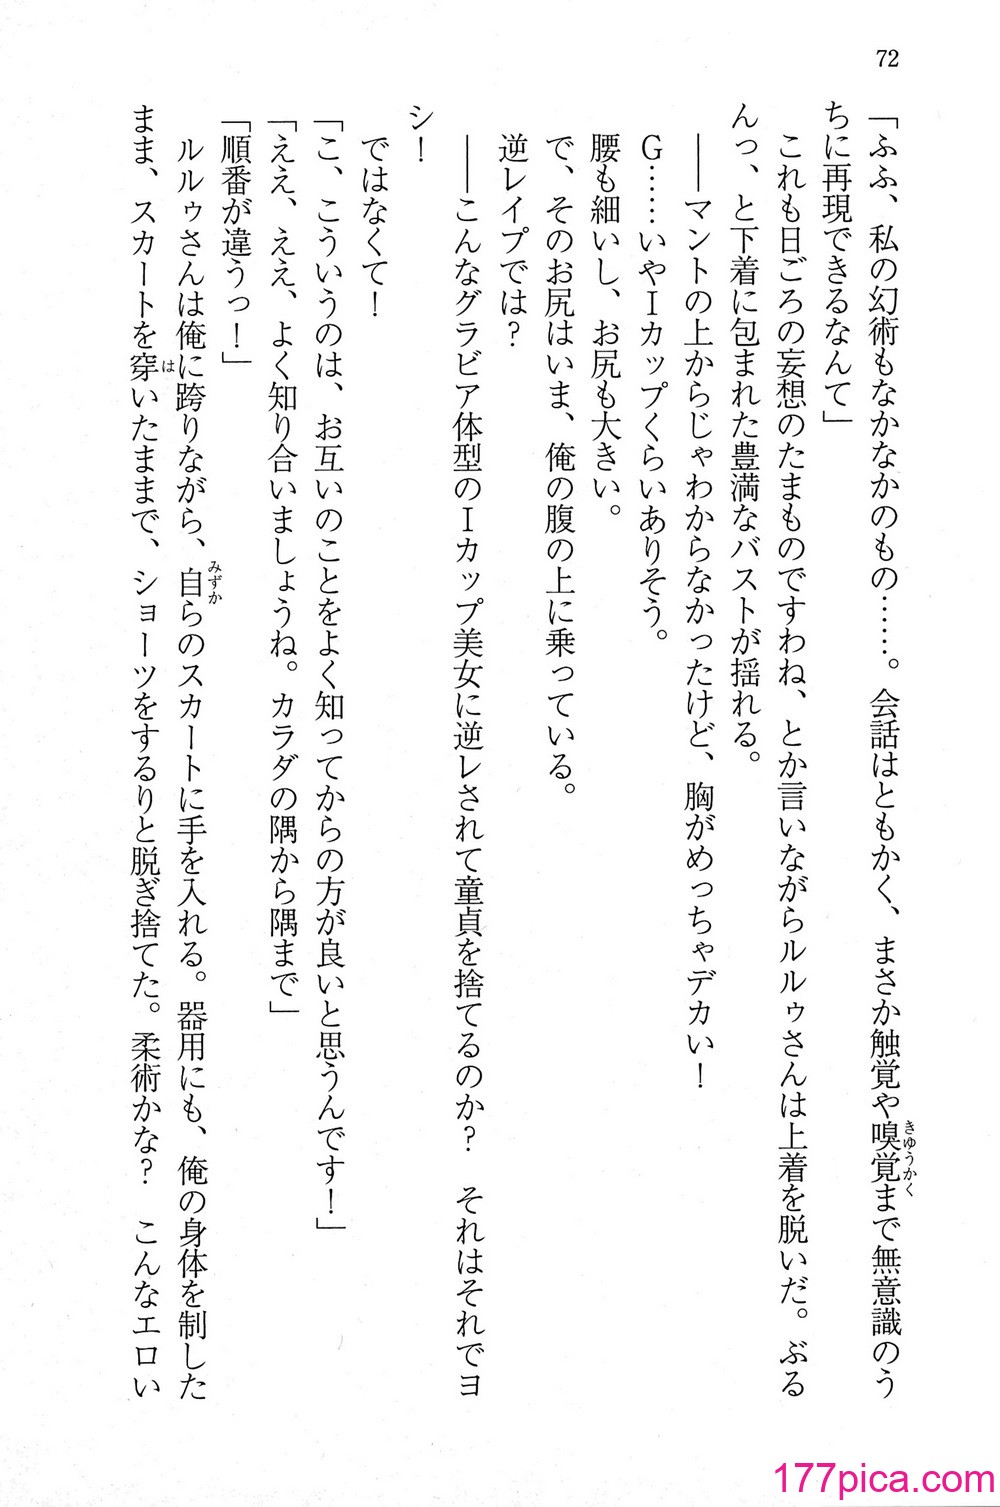 72
「ふふ、私の幻術もなかなかのもの……。会話はともかく、まさか触覚や嗅覚まで無意識のう
きゅうかく
ちに再現できるなんて」
これも日ごろの妄想のたまものですわね、とか言いながらルルゥさんは上着を脱いだ。ぶる
んっ、と下着に包まれた豊満なバストが揺れる。
――マントの上からじゃわからなかったけど、胸がめっちゃデカい！
G……いやIカップくらいありそう。
腰も細いし、お尻も大きい。
で、そのお尻はいま、俺の腹の上に乗っている。
逆レイプでは？
――こんなグラビア体型のIカップ美女に逆レされて童貞を捨てるのか？　それはそれでヨ
シ！
ではなくて！
「こ、こういうのは、お互いのことをよく知ってからの方が良いと思うんです！」
「ええ、ええ、よく知り合いましょうね。カラダの隅から隅まで」
「順番が違うっ！」
ルルゥさんは俺に跨りながら、自らのスカートに手を入れる。器用にも、俺の身体を制した
みずか
まま、スカートを穿いたままで、ショーツをするりと脱ぎ捨てた。柔術かな？　こんなエロい
は
177pica.com